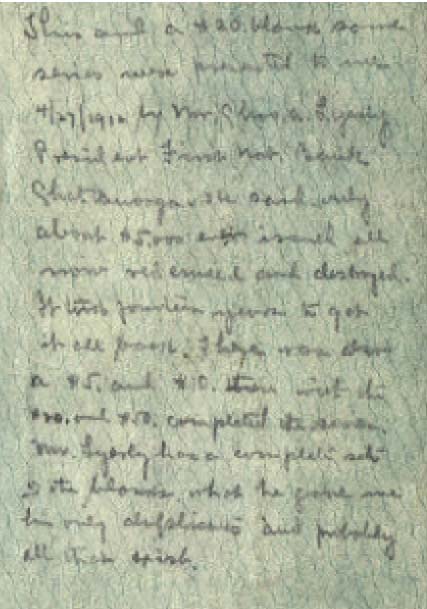 This and a $20. blank same
series were presented to me
4/27/1912 by Mr. Chas. A. Lyerly
President First Nat. Bank
Chattanooga. He said only
about $5,000 ever issued all
now redeemed and destroyed.
It took fourteen years to get
it all paid. There was also
a $5. and $10. these with the
$20. and $50. completed the series.
Mr. Lyerly has a complete set
the blanks, what he gave me
his only duplicates and probably
all that exist.